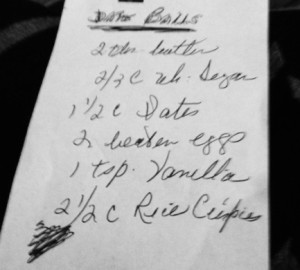 Date Balls
2 tbs. butter
2/3 c wh. Sugar
1 1/2 c Dates
2 beaten eggs
1 tsp. Vanilla
2 1/2 c Rice Cripies